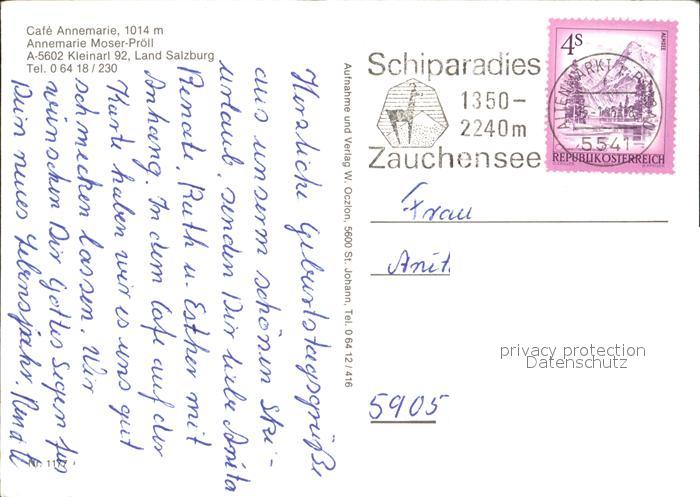 Café Annemarie, 1014 m
Annemarie Moser-Pröll
A-5602 Kleinarl 92, Land Salzburg
Tel. 0 64 18 / 230
Herzliche Geburtstagsgrüße
aus unserm schönen Ski-
urlaub, senden Dir liebe Anita
Renate, Ruth u. Esther mit
Anhang. In dem Cafe auf der
Karte haben wir es uns gut
schmecken lassen. Wir
wünschen Dir Gottes Segen für
Dein neues Lebensjahr.
Aufnahme und Verlag W. Oczlon, 5600 St. Johann, Tel. 0 64 12 / 416
Schiparadies
1350-
2240m
Zauchensee
4S
ALMSEE
REPUBLIK ÖSTERREICH
5541
Frau
Anit
privacy protection
Datenschutz
5905